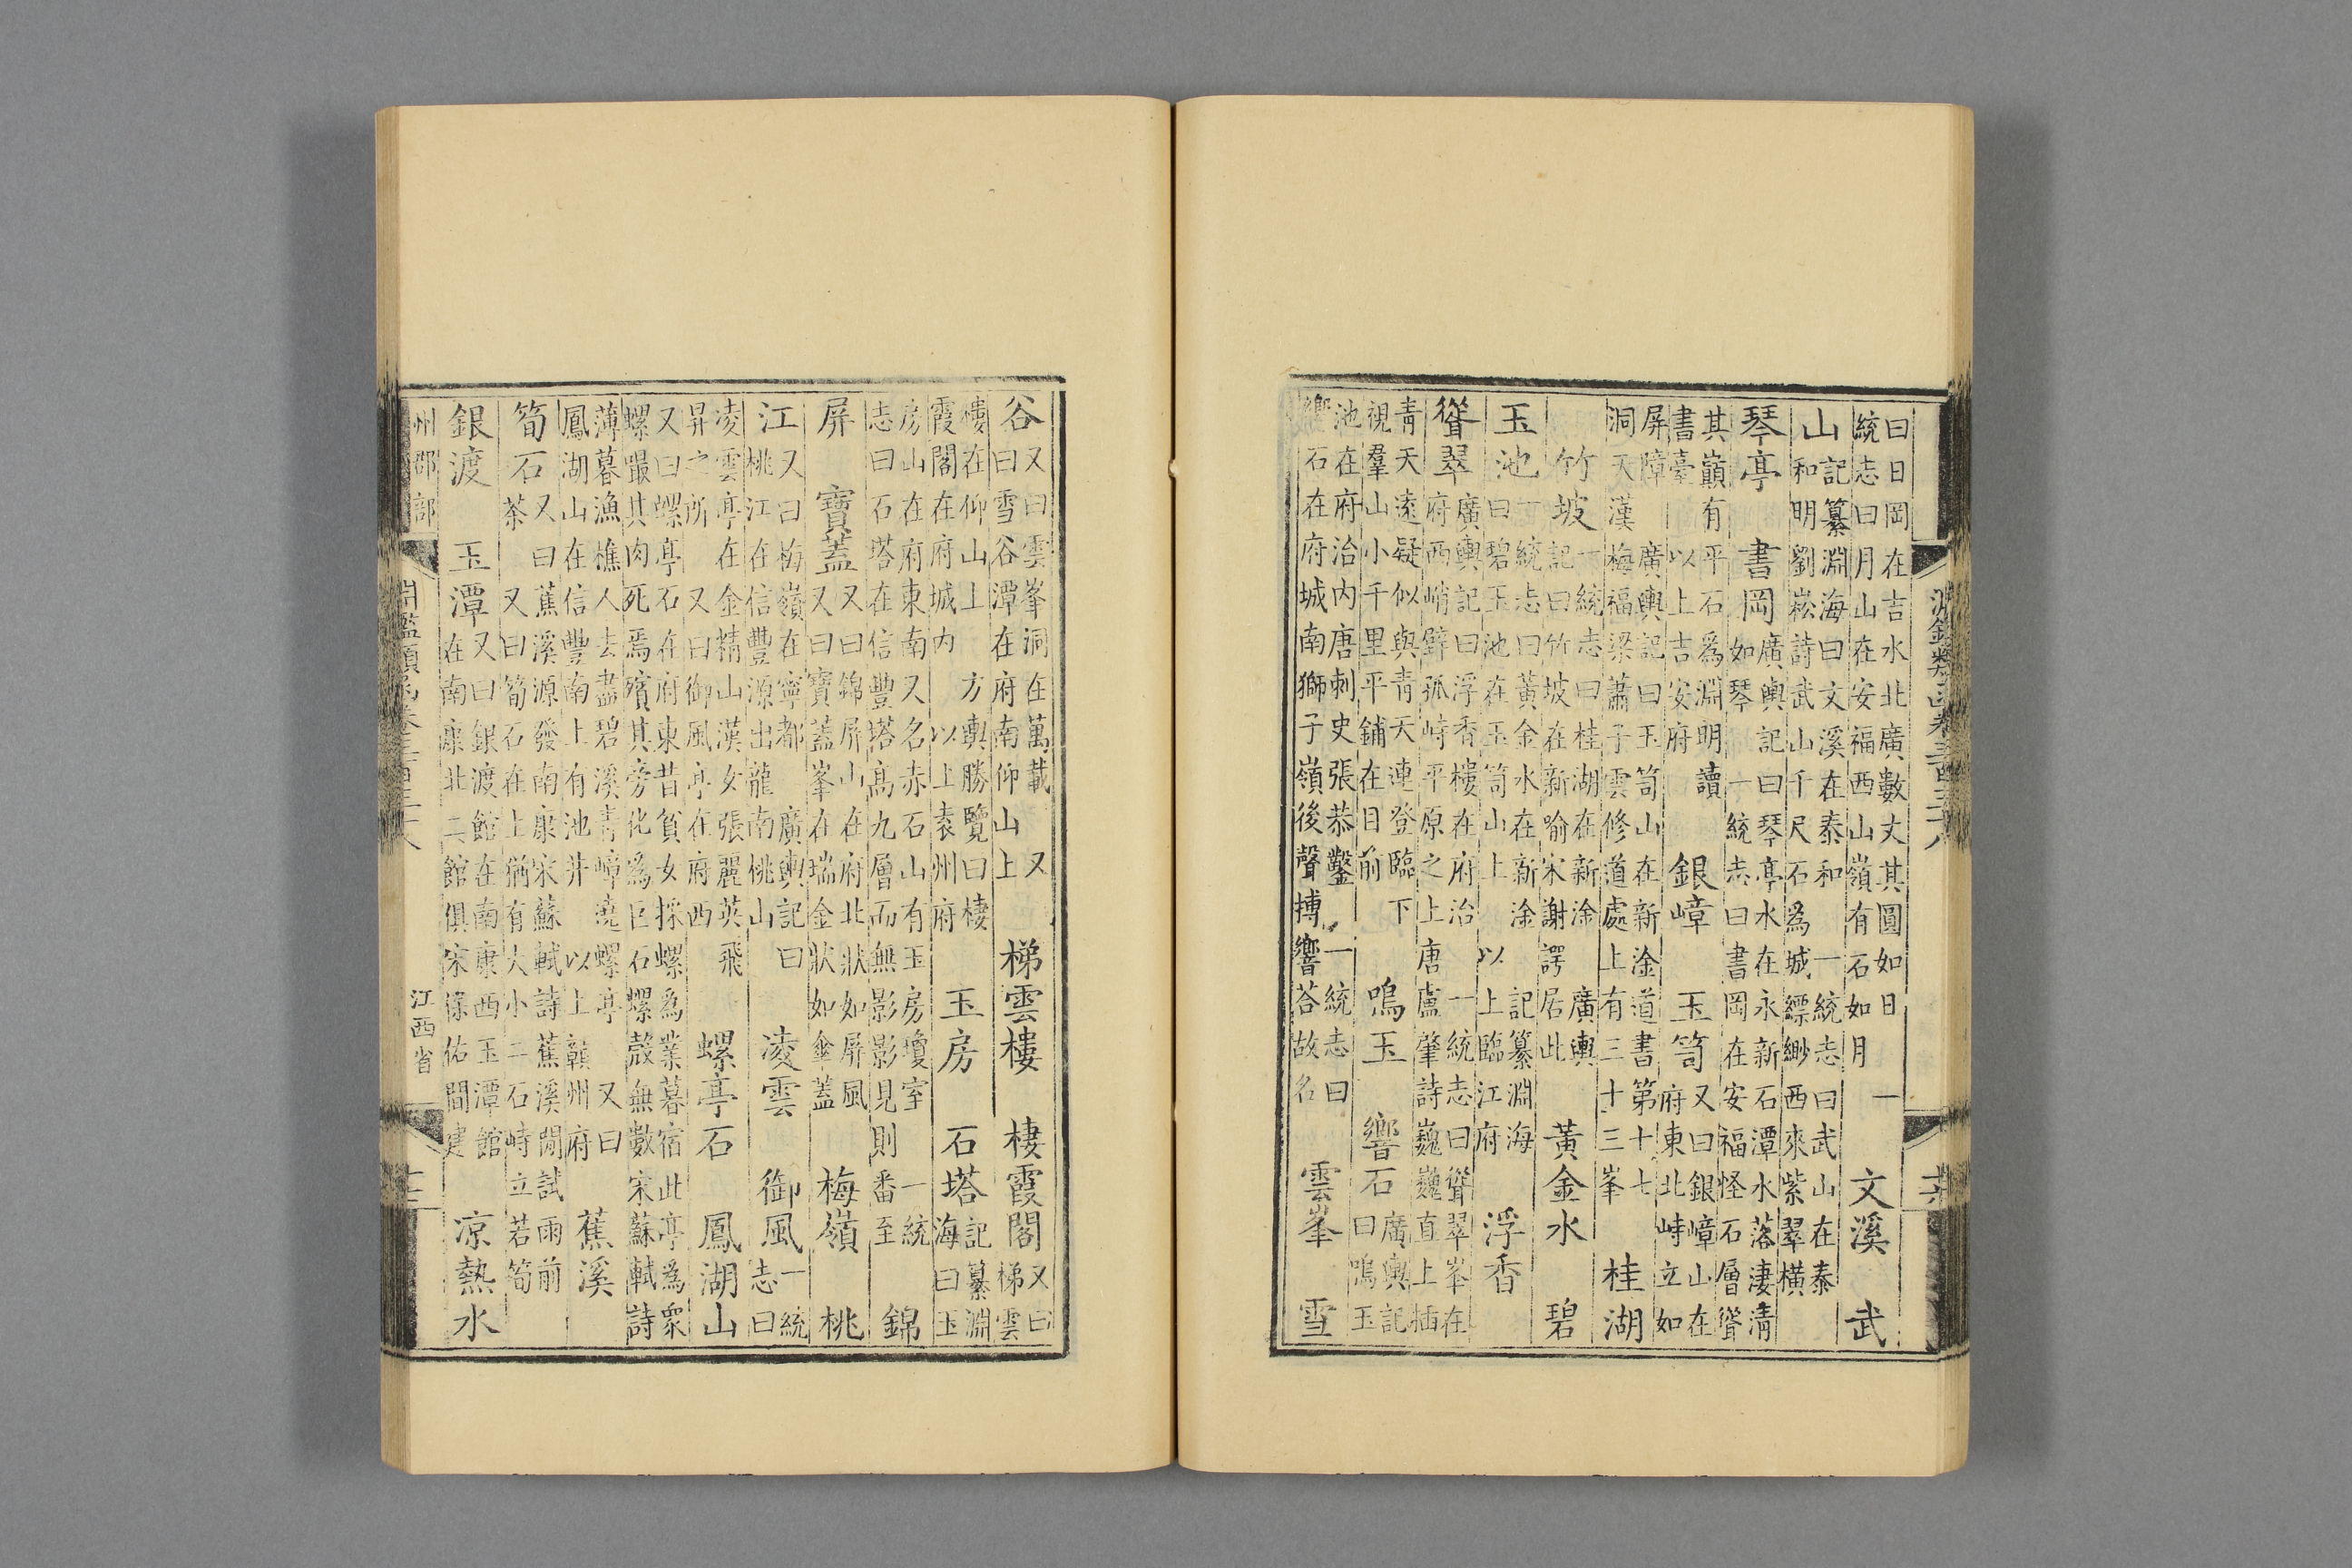 淵鑑類函卷三百三十八
曰日岡在吉水北廣數丈其圓如日一
統志曰月山在安福西山嶺有石如月
文溪 武
山
記纂淵海曰文溪在泰和一統志曰武山在泰
和明劉崧詩武山千尺石為城縹緲西來紫翠橫
琴亭 書岡
廣輿記曰琴亭水在永新石潭水落淒清
如琴一統志曰書岡在安福怪石層聳
其巔有平石為淵明讀
書臺 以上吉安府
銀嶂 玉笥
又曰銀嶂山在
府東北峙立如
屏障 廣輿記曰玉笥山在新淦道書第十七
洞天漢梅福梁蕭子雲修道處上有三十三峯
桂湖
竹坡
一統志曰桂湖在新淦廣輿
記曰竹坡在新喻宋謝諤居此
黃金水 碧
玉池
一統志曰黃金水在新淦記纂淵海
曰碧玉池在玉笥山上以上臨江府
浮香
聳翠
廣輿記曰浮香樓在府治一統志曰聳翠峯在
府西峭壁孤峙平原之上唐盧肇詩巍巍直上插
青天遠疑似與青天連登臨下
視羣山小千里平鋪在目前
鳴玉 響石
廣輿記
曰鳴玉
池在府治內唐刺史張恭鑿一統志曰
響石在府城南獅子嶺後聲搏響荅故名
雲峯 雪
谷
又曰雲峯洞在萬載又
曰雪谷潭在府南仰山上
梯雲樓 棲霞閣
又曰
梯雲
樓在仰山上 方輿勝覽曰棲
霞閣在府城內 以上袁州府
玉房 石塔
記纂淵
海曰玉
房山在府東南又名赤石山有玉房瓊室一統
志曰石塔在信豐塔高九層而無影影見則番至
錦
屏 寶蓋
又曰錦屏山在府北狀如屏風
又曰寶蓋峯在瑞金狀如傘蓋
梅嶺 桃
江
又曰梅嶺在寧都廣輿記曰
桃江在信豐源出龍南桃山
凌雲 御風
一統
志曰
凌雲亭在金精山漢女張麗英飛
昇之所 又曰御風亭在府西
螺亭石 鳳湖山
又曰螺亭石在府東昔貧女採螺為業暮宿此亭為衆
螺囓其肉死焉殯其旁化為巨石螺殼無數宋蘇軾詩
薄暮漁樵人去盡碧溪青嶂遶螺亭又曰
鳳湖山在信豐南上有池井以上贛州府
蕉溪
筍石
又曰蕉溪源發南康宋蘇軾詩蕉溪閑試雨前
茶 又曰筍石在上猶有大小二石峙立若筍
銀渡 玉潭
又曰銀渡館在南康西玉潭館
在南康北二館俱宋佑間建
涼熱水
州郡部 淵鑑類函卷三百三十八 江西省